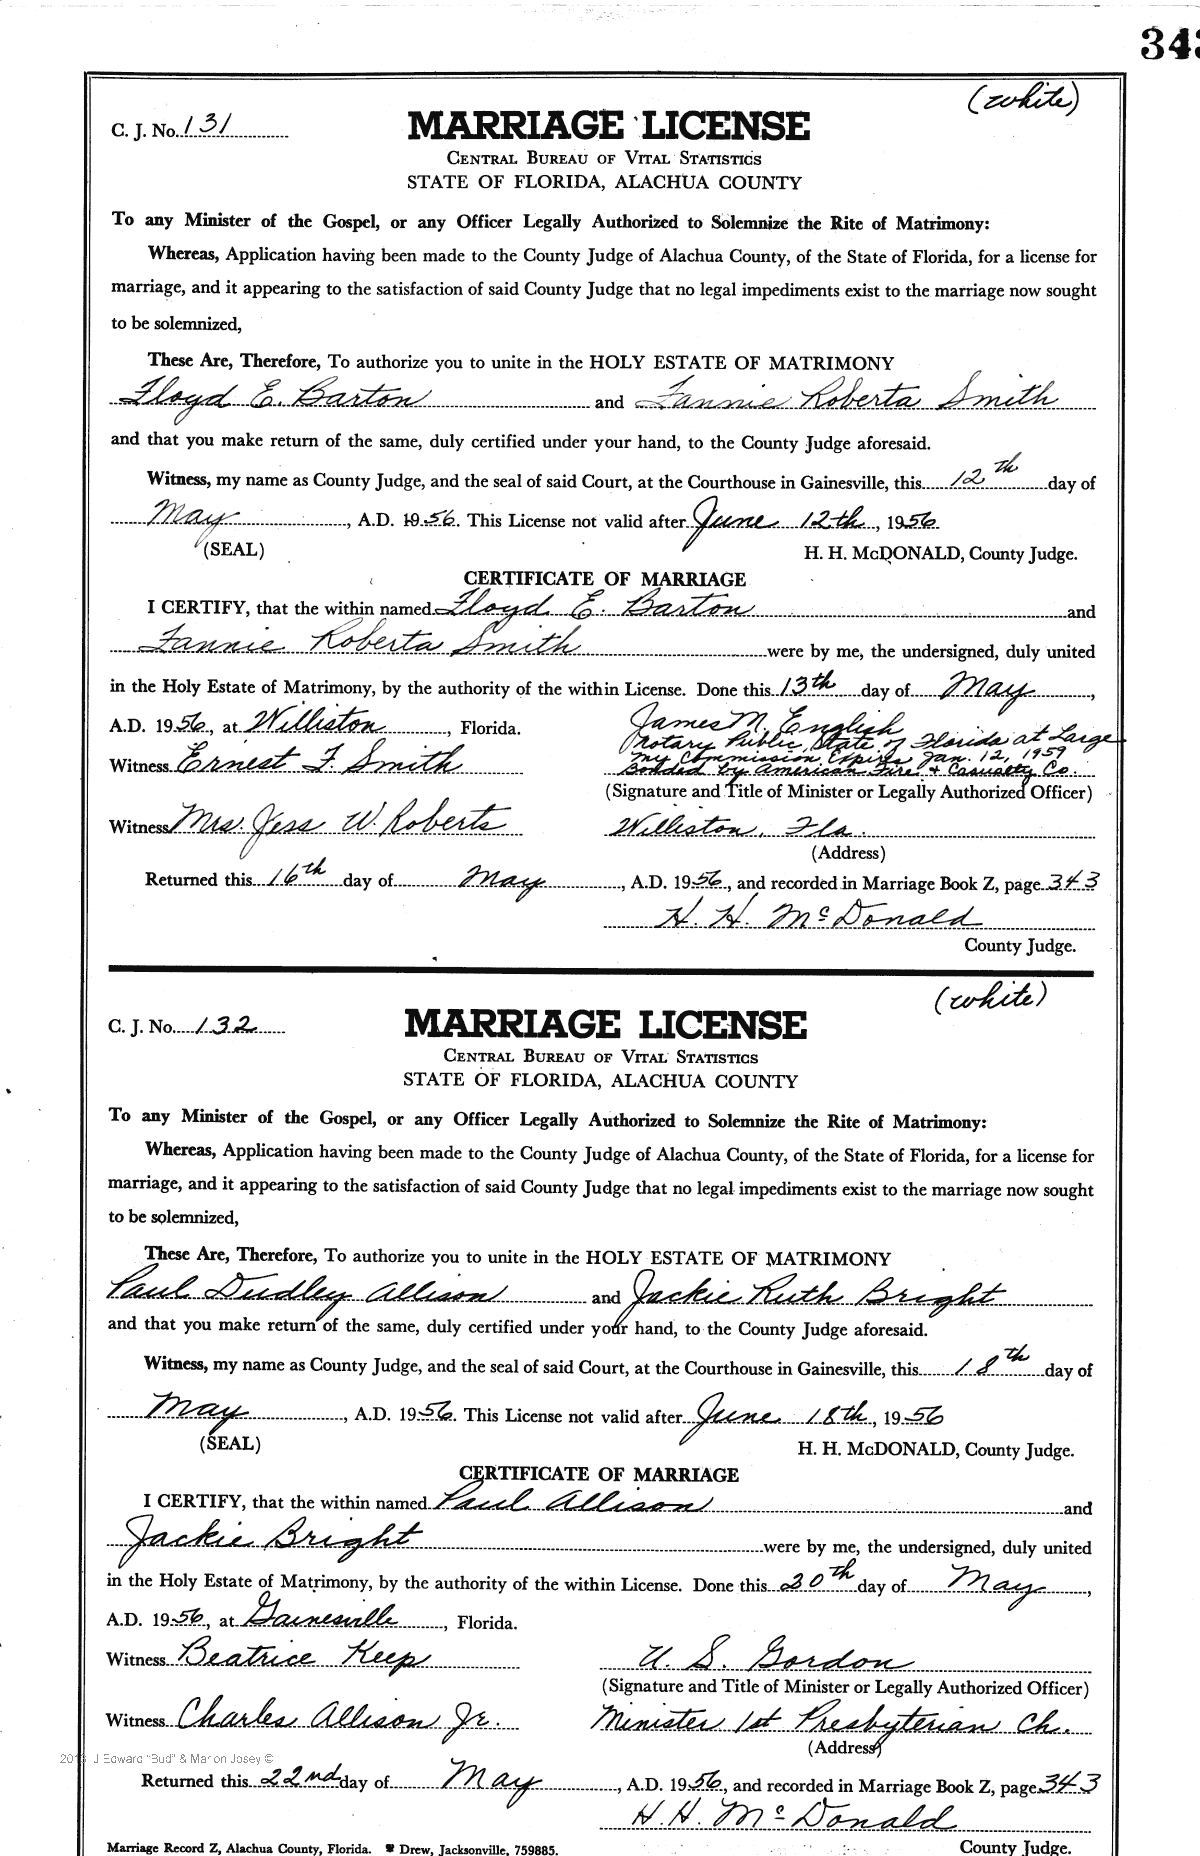 343
(white)
C. J. No. 131
MARRIAGE LICENSE
CENTRAL BUREAU OF VITAL STATISTICS
STATE OF FLORIDA, ALACHUA COUNTY
To any Minister of the Gospel, or any Officer Legally Authorized to Solemnize the Rite of Matrimony:
Whereas, Application having been made to the County Judge of Alachua County, of the State of Florida, for a license for
marriage, and it appearing to the satisfaction of said County Judge that no legal impediments exist to the marriage now sought
to be solemnized,
These Are, Therefore, To authorize you to unite in the HOLY ESTATE OF MATRIMONY
Floyd E. Barton and Fannie Roberta Smith
and that you make return of the same, duly certified under your hand, to the County Judge aforesaid.
Witness, my name as County Judge, and the seal of said Court, at the Courthouse in Gainesville, this 12th day of
May, A.D. 1956. This License not valid after June 12th, 1956
(SEAL) H. H. McDONALD, County Judge.
CERTIFICATE OF MARRIAGE
I CERTIFY, that the within named Floyd E. Barton and
Fannie Roberta Smith were by me, the undersigned, duly united
in the Holy Estate of Matrimony, by the authority of the within License. Done this 13th day of May,
A.D. 1956, at Williston, Florida. James M. English
Notary Public, State of Florida at Large
My Commission Expires Jan. 12, 1959
Witness Ernest F. Smith Bonded by American Fire & Casualty Co.
(Signature and Title of Minister or Legally Authorized Officer)
Witness Mrs. Jess W. Roberts Williston, Fla.
(Address)
Returned this 16th day of May, A.D. 1956, and recorded in Marriage Book Z, page 343
H. H. McDonald
County Judge.
(white)
C. J. No. 132
MARRIAGE LICENSE
CENTRAL BUREAU OF VITAL STATISTICS
STATE OF FLORIDA, ALACHUA COUNTY
To any Minister of the Gospel, or any Officer Legally Authorized to Solemnize the Rite of Matrimony:
Whereas, Application having been made to the County Judge of Alachua County, of the State of Florida, for a license for
marriage, and it appearing to the satisfaction of said County Judge that no legal impediments exist to the marriage now sought
to be solemnized,
These Are, Therefore, To authorize you to unite in the HOLY ESTATE OF MATRIMONY
Paul Dudley Allison and Jackie Ruth Bright
and that you make return of the same, duly certified under your hand, to the County Judge aforesaid.
Witness, my name as County Judge, and the seal of said Court, at the Courthouse in Gainesville, this 18th day of
May, A.D. 1956. This License not valid after June 18th, 1956
(SEAL) H. H. McDONALD, County Judge.
CERTIFICATE OF MARRIAGE
I CERTIFY, that the within named Paul Allison and
Jackie Bright were by me, the undersigned, duly united
in the Holy Estate of Matrimony, by the authority of the within License. Done this 20th day of May,
A.D. 1956, at Gainesville, Florida.
Witness Beatrice Keep U. S. Gordon
(Signature and Title of Minister or Legally Authorized Officer)
Witness Charles Allison Jr. Minister 1st Presbyterian Ch.
(Address)
J Edward "Bud" & Marion Josey ©
Returned this 22nd day of May, A.D. 1956, and recorded in Marriage Book Z, page 343
H. H. McDonald
Marriage Record Z, Alachua County, Florida. Drew, Jacksonville, 759885. County Judge.